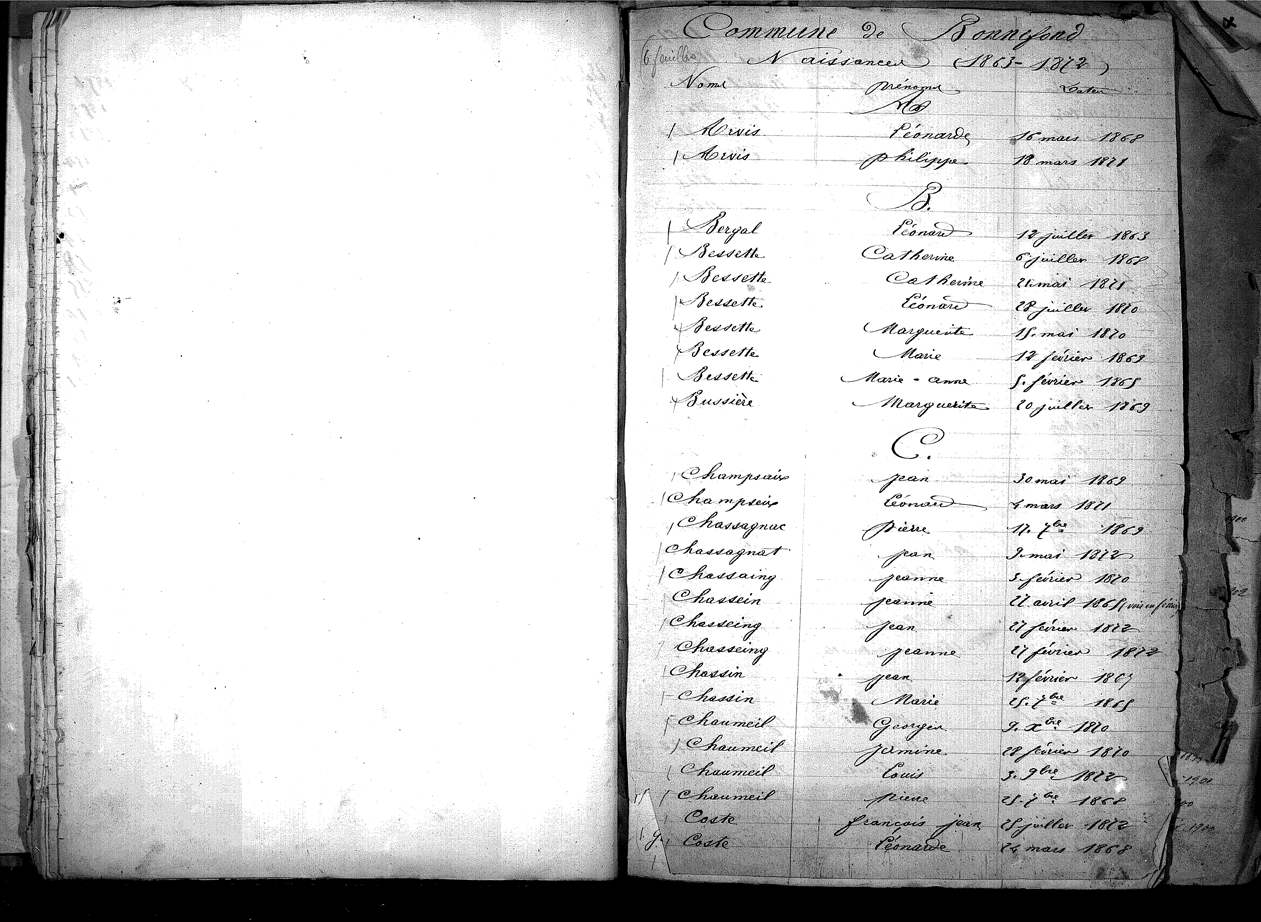 Commune de Bonnefond
6 feuilles Naissances (1863-1872)
Noms prénoms Dates
A
Arvis Léonarde 16 mars 1868
Arvis philippe 18 mars 1871
B.
Bergal Léonard 12 juillet 1863
Bessette Catherine 6 juillet 1868
Bessette Catherine 21 mai 1871
Bessette Léonard 28 juillet 1870
Bessette Marguerite 15. mai 1870
Bessette Marie 12 février 1869
Bessette Marie-anne 5. février 1865
Bussière Marguerite 20 juillet 1869
C.
Champsaix jean 30 mai 1869
Champseix Léonard 4 mars 1871
Chassagnac pierre 17. 7bre 1869
Chassagnat jean 9. mai 1872
Chassaing jeanne 3. février 1870
Chassein jeanne 22 avril 1865
Chasseing jean 27 février 1872
Chasseing jeanne 27 février 1872
Chassin jean 12 février 1867
Chassin Marie 25. 7bre 1865
Chaumeil Georges 9. Xbre 1870
Chaumeil jermine 28 février 1870
Chaumeil Louis 3. 9bre 1872
Chaumeil pierre 25. 7bre 1868
Coste françois jean 25 juillet 1872
Coste Léonarde 24 mars 1868